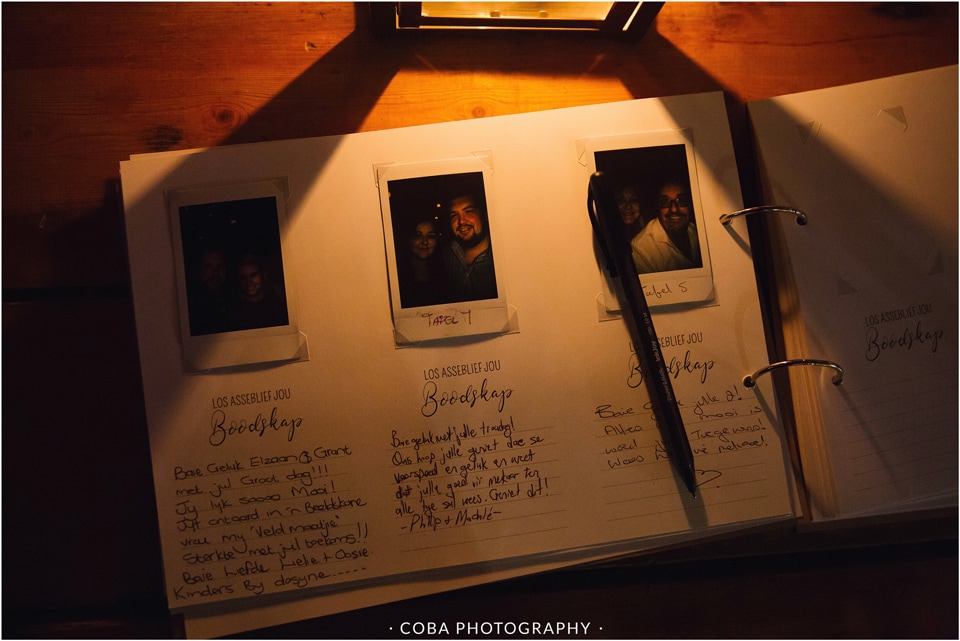 TAFEL 7
Tafel 5
LOS ASSEBLIEF JOU
Boodskap
Baie Geluk Elzaan & Grant
met jul Groot dag!!!
Jy lyk soooo Mooi!
Jy ontoord in 'n Beeldskone
vrou my 'Veld maatjie'
Sterkte met jul toekoms!!
Baie Liefde Lielie + Oosie.
Kinders By dosyne.....
LOS ASSEBLIEF JOU
Boodskap
Baie geluk met julle troudag!
Ons hoop julle geniet dae se
voorspoed en geluk en weet
dat julle goed vir mekaar ten
alle tye sal wees. Geniet dit!
- Philip +
ASSEBLIEF JOU
Boodskap
Baie julle 2!
Alles mooi is
Teegees!
LOS ASSEBLIEF JOU
Boodskap
· COBA PHOTOGRAPHY ·